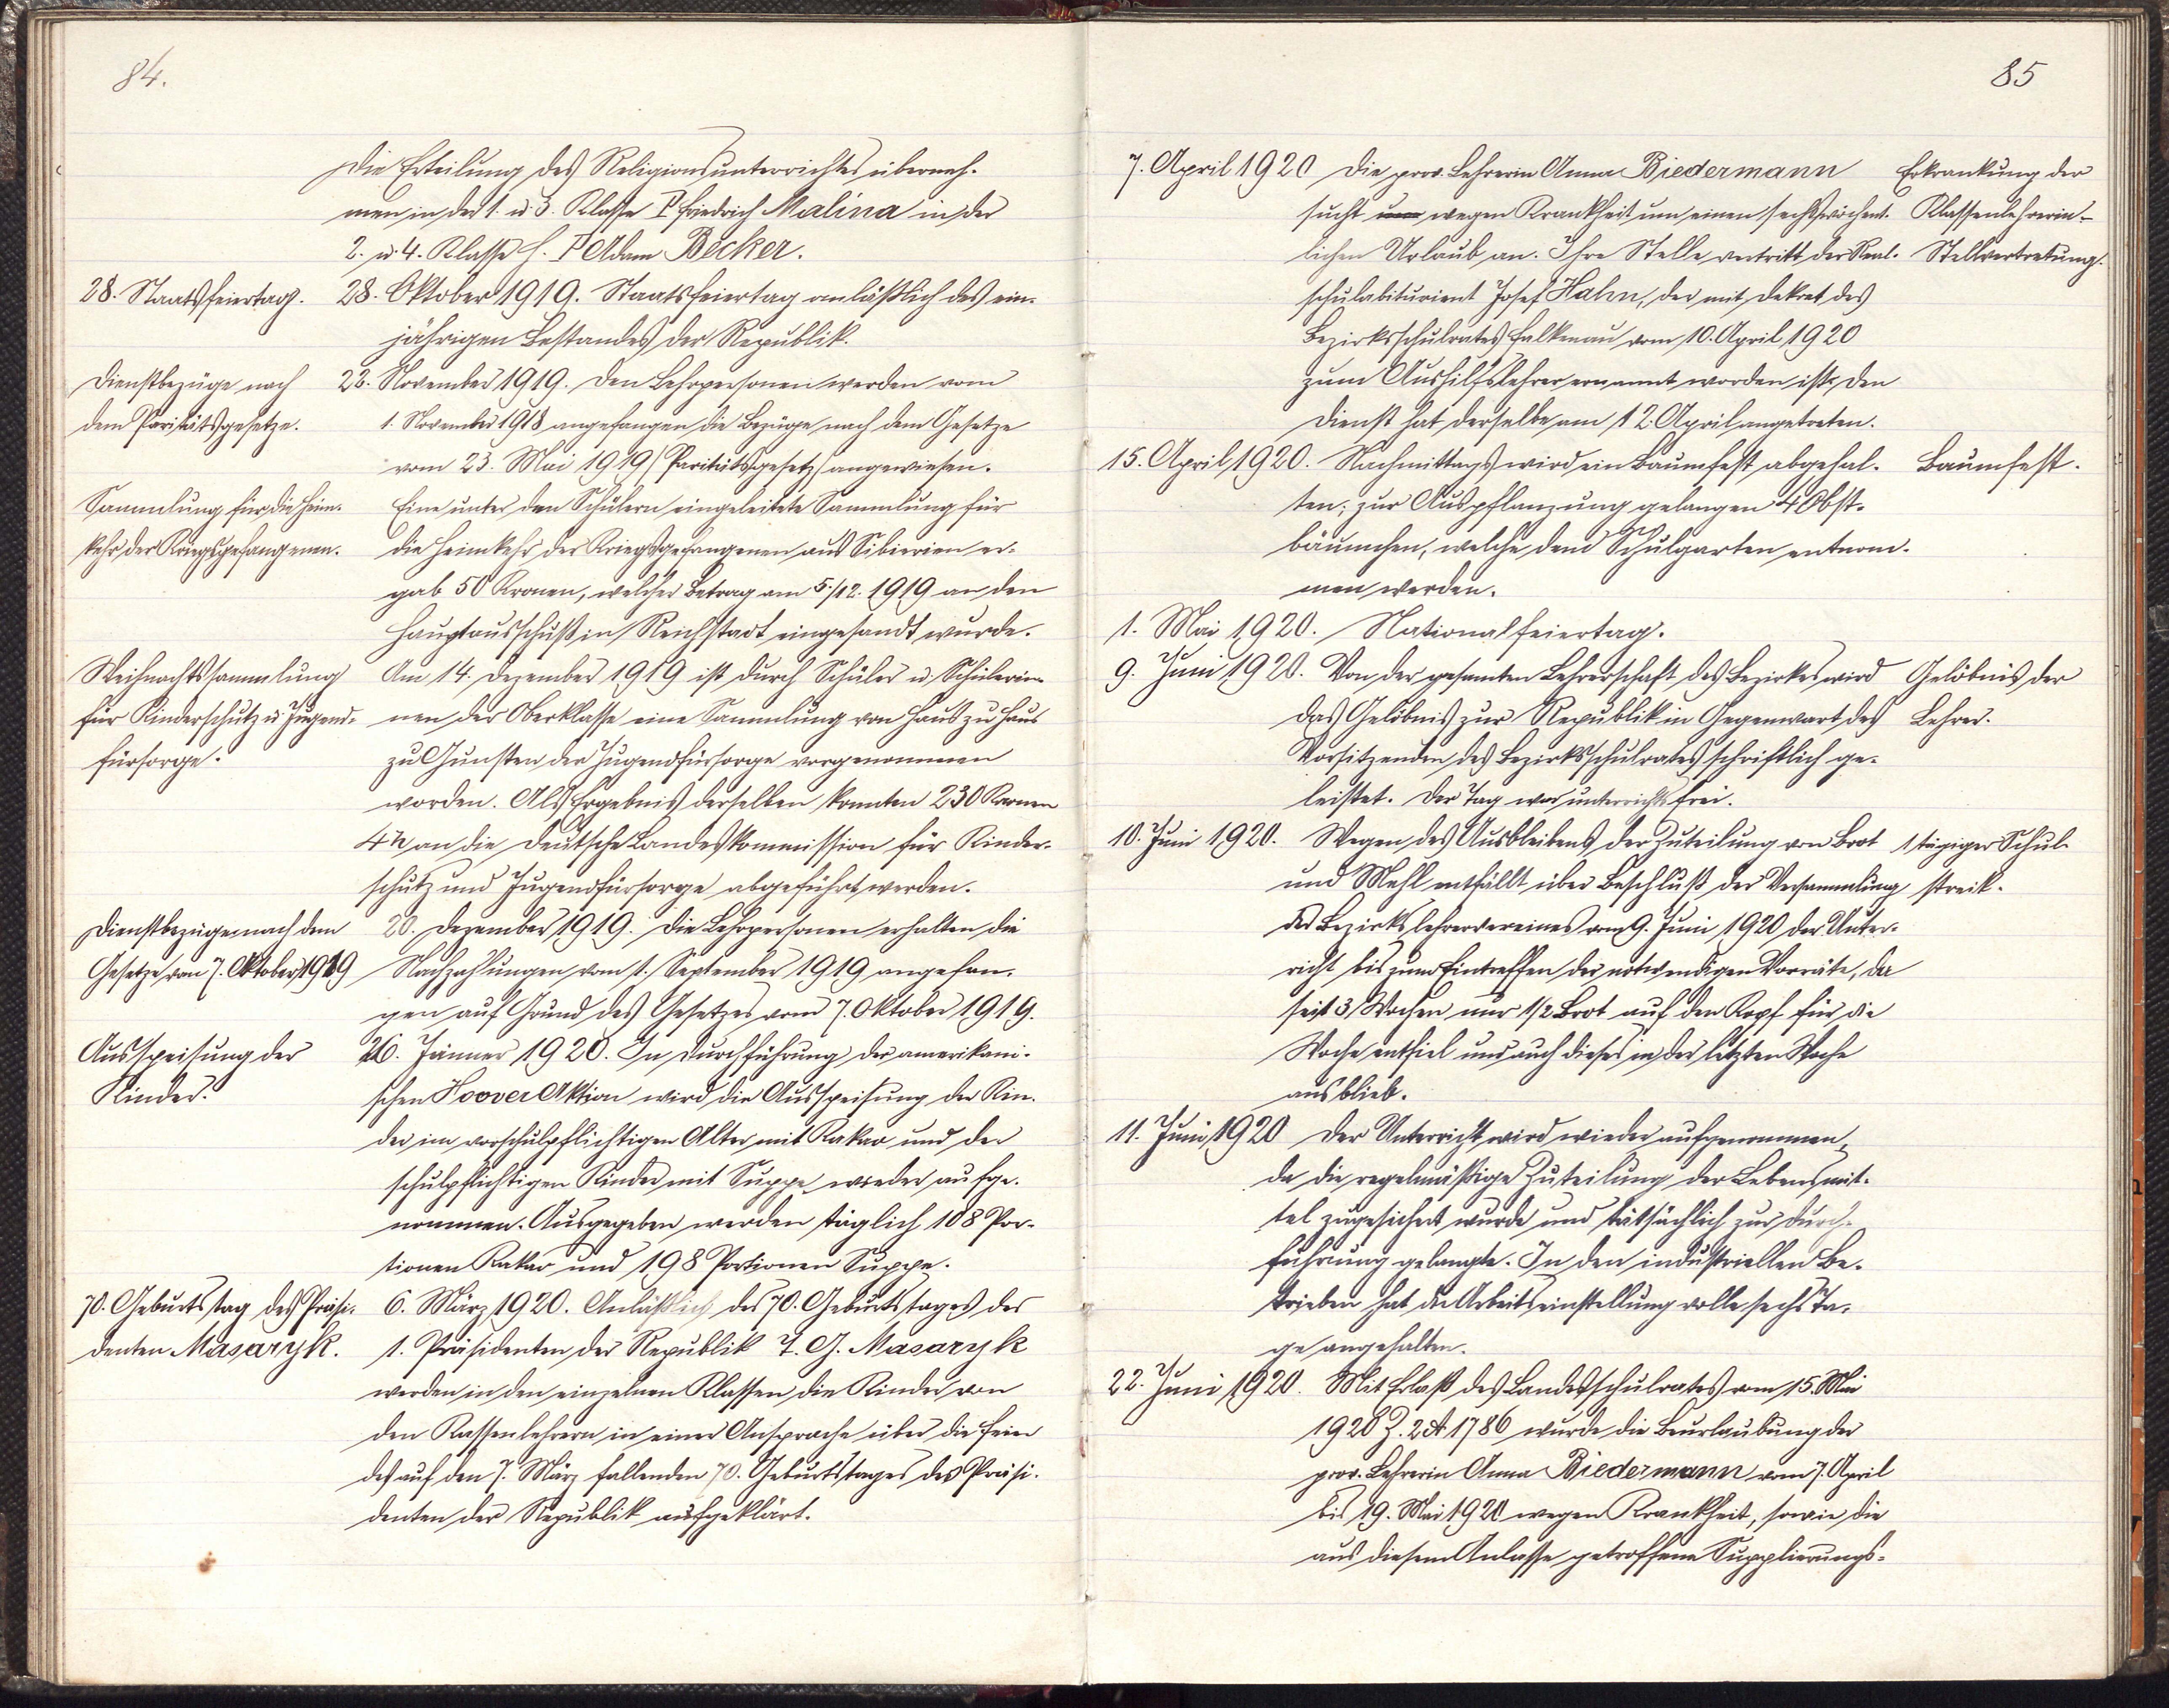 84.
Die Erteilung des Religionsunterrichtes überneh-
men in der 1. u. 3. Klasse P. Friedrich Malina in der
2. u. 4. Klasse H. P. Adam Becker.
28. Staatsfeiertag.
28. Oktober 1919. Staatsfeiertag anläßlich des ein-
jährigen Bestandes der Republik.
Dienstbezüge nach
dem Paritätsgesetze.
22. November 1919. Den Lehrpersonen werden vom
1. November 1918 angefangen die Bezüge nach dem Gesetze
vom 23. Mai 1919 (Paritätsgesetz) angewiesen.
Sammlung für die Heim-
kehr der Kriegsgefangenen.
Eine unter den Schülern eingeleitete Sammlung für
die Heimkehr der Kriegsgefangenen aus Sibirien er-
gab 50 Kronen, welcher Betrag am 5./12. 1919 an den
Hauptausschuß in Reichstadt eingesandt wurde.
Weihnachtssammlung
für Kinderschutz u. Jugend-
fürsorge.
Am 14. Dezember 1919 ist durch Schüler u. Schülerin-
nen der Oberklasse eine Sammlung von Haus zu Haus
zu Gunsten der Jugendfürsorge vorgenommen
worden. Als Ergebnis derselben konnten 230 Kronen
4 h an die Deutsche Landeskommission für Kinder-
schutz und Jugendfürsorge abgeführt werden.
Dienstbezüge nach dem
Gesetze vom 7. Oktober 1919
20. Dezember 1919. Die Lehrpersonen erhalten die
Nachzahlungen vom 1. September 1919 angefan-
gen auf Grund des Gesetzes vom 7. Oktober 1919.
Ausspeisung der
Kinder.
26. Jänner 1920. In Durchführung der amerikani-
schen Hoover Aktion wird die Ausspeisung der Kin-
der im vorschulpflichtigen Alter mit Kakao und der
schulpflichtigen Kinder mit Suppe wieder aufge-
nommen. Ausgegeben werden täglich 108 Por-
tionen Kakao und 198 Portionen Suppe.
70. Geburtstag des Präsi-
denten Masaryk.
6. März 1920. Anläßlich des 70. Geburtstages des
1. Präsidenten der Republik T. G. Masaryk
werden in den einzelnen Klassen die Kinder von
den Klassenlehrern in einer Ansprache über die Feier
des auf den 7. März fallenden 70. Geburtstages des Präsi-
denten der Republik aufgeklärt.
85
7. April 1920 Die prov. Lehrerin Anna Biedermann
sucht um wegen Krankheit um einen sechswöchent-
lichen Urlaub an. Ihre Stelle vertritt der Real-
schulabiturient Josef Hahn, der mit Dekret des
Bezirksschulrates Falkenau vom 10. April 1920
zum Aushilfslehrer ernannt worden ist. Den
Dienst hat derselbe am 12. April angetreten.
Erkrankung der
Klassenlehrerin-
Stellvertretung.
15. April 1920. Nachmittags wird ein Baumfest abgehal-
ten; zur Auspflanzung gelangen 4 Obst-
bäumchen, welche dem Schulgarten entnom-
men werden.
Baumfest.
1. Mai 1920. Nationalfeiertag.
9. Juni 1920. Von der gesamten Lehrerschaft des Bezirkes wird
das Gelöbnis zur Republik in Gegenwart des
Vorsitzenden des Bezirksschulrates schriftlich ge-
leistet. Der Tag war unterrichtsfrei.
Gelöbnis der
Lehrer.
10. Juni 1920. Wegen des Ausbleibens der Zuteilung von Brot
und Mehl entfällt über Beschluß der Versammlung
des Bezirkslehrervereines vom 9. Juni 1920 der Unter-
richt bis zum Eintreffen der notwendigen Vorräte, da
seit 3 Wochen nur 1/2 Brot auf den Kopf für die
Woche entfiel und auch dieses in der letzten Woche
ausblieb.
1 tägiger Schul-
streik.
11. Juni 1920 Der Unterricht wird wieder aufgenommen,
da die regelmäßige Zuteilung der Lebensmit-
tel zugesichert wurde und tatsächlich zur Durch-
führung gelangte. In den industriellen Be-
trieben hat die Arbeitseinstellung volle sechs Ta-
ge angehalten.
22. Juni 1920. Mit Erlaß des Landesschulrates vom 15. Mai
1920 Z. 2 A 1786 wurde die Beurlaubung der
prov. Lehrerin Anna Biedermann vom 7. April
bis 19. Mai 1920 wegen Krankheit, sowie die
aus diesem Anlasse getroffene Supplierungs-